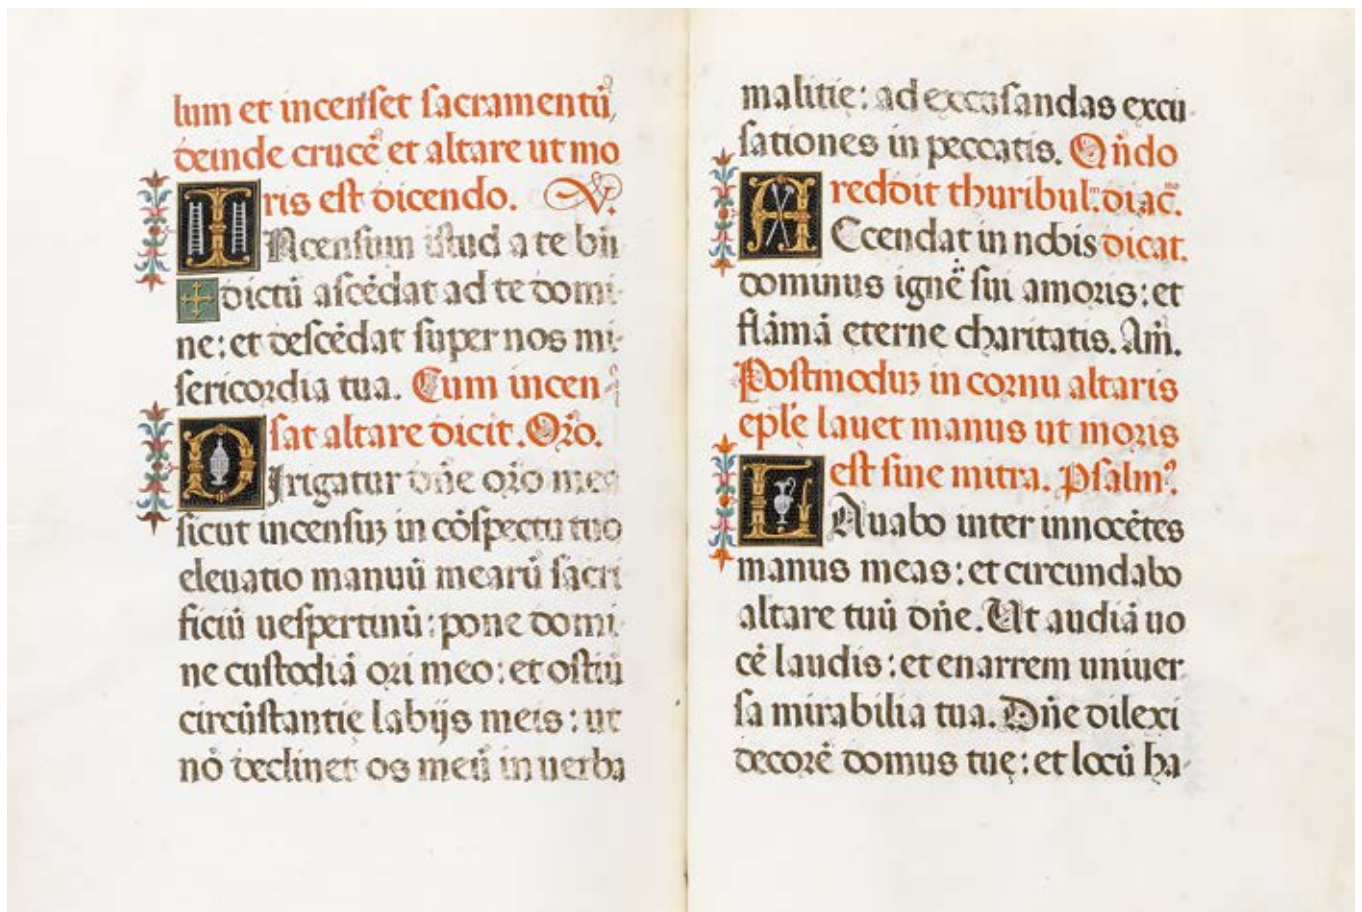 lum et incenset sacramentū,
deinde crucē et altare ut mo
ris est dicendo. V.
INcensum istud a te bn̄
✠ dictū ascēdat ad te domi-
ne: et descēdat super nos mi-
sericordia tua. Cum incen-
sat altare dicit. Oŕo.
DIrigatur dn̄e oŕo mea
sicut incensuꝫ in cōspectu tuo
eleuatio manuū mearū sacri
ficiū uespertinū: pone domi-
ne custodiā ori meo: et ostiū
circūstantię labijs meis: ut
nō declinet os meū in uerba
malitię: ad excusandas excu-
sationes in peccatis. Qn̄do
reddit thuribul.ᵐ diac̄.ⁿᵒ
ACcendat in nobis dicat.
dominus ignē sui amoris: et
flāmā eterne charitatis. Am̄.
Postmoduꝫ in cornu altaris
eple lauet manus ut moris
est sine mitra. Psalmꝰ.
LAuabo inter innocētes
manus meas: et circundabo
altare tuū dn̄e. Ut audiā uo
cē laudis: et enarrem uniuer-
sa mirabilia tua. Dn̄e dilexi
decorē domus tuę: et locū ha-